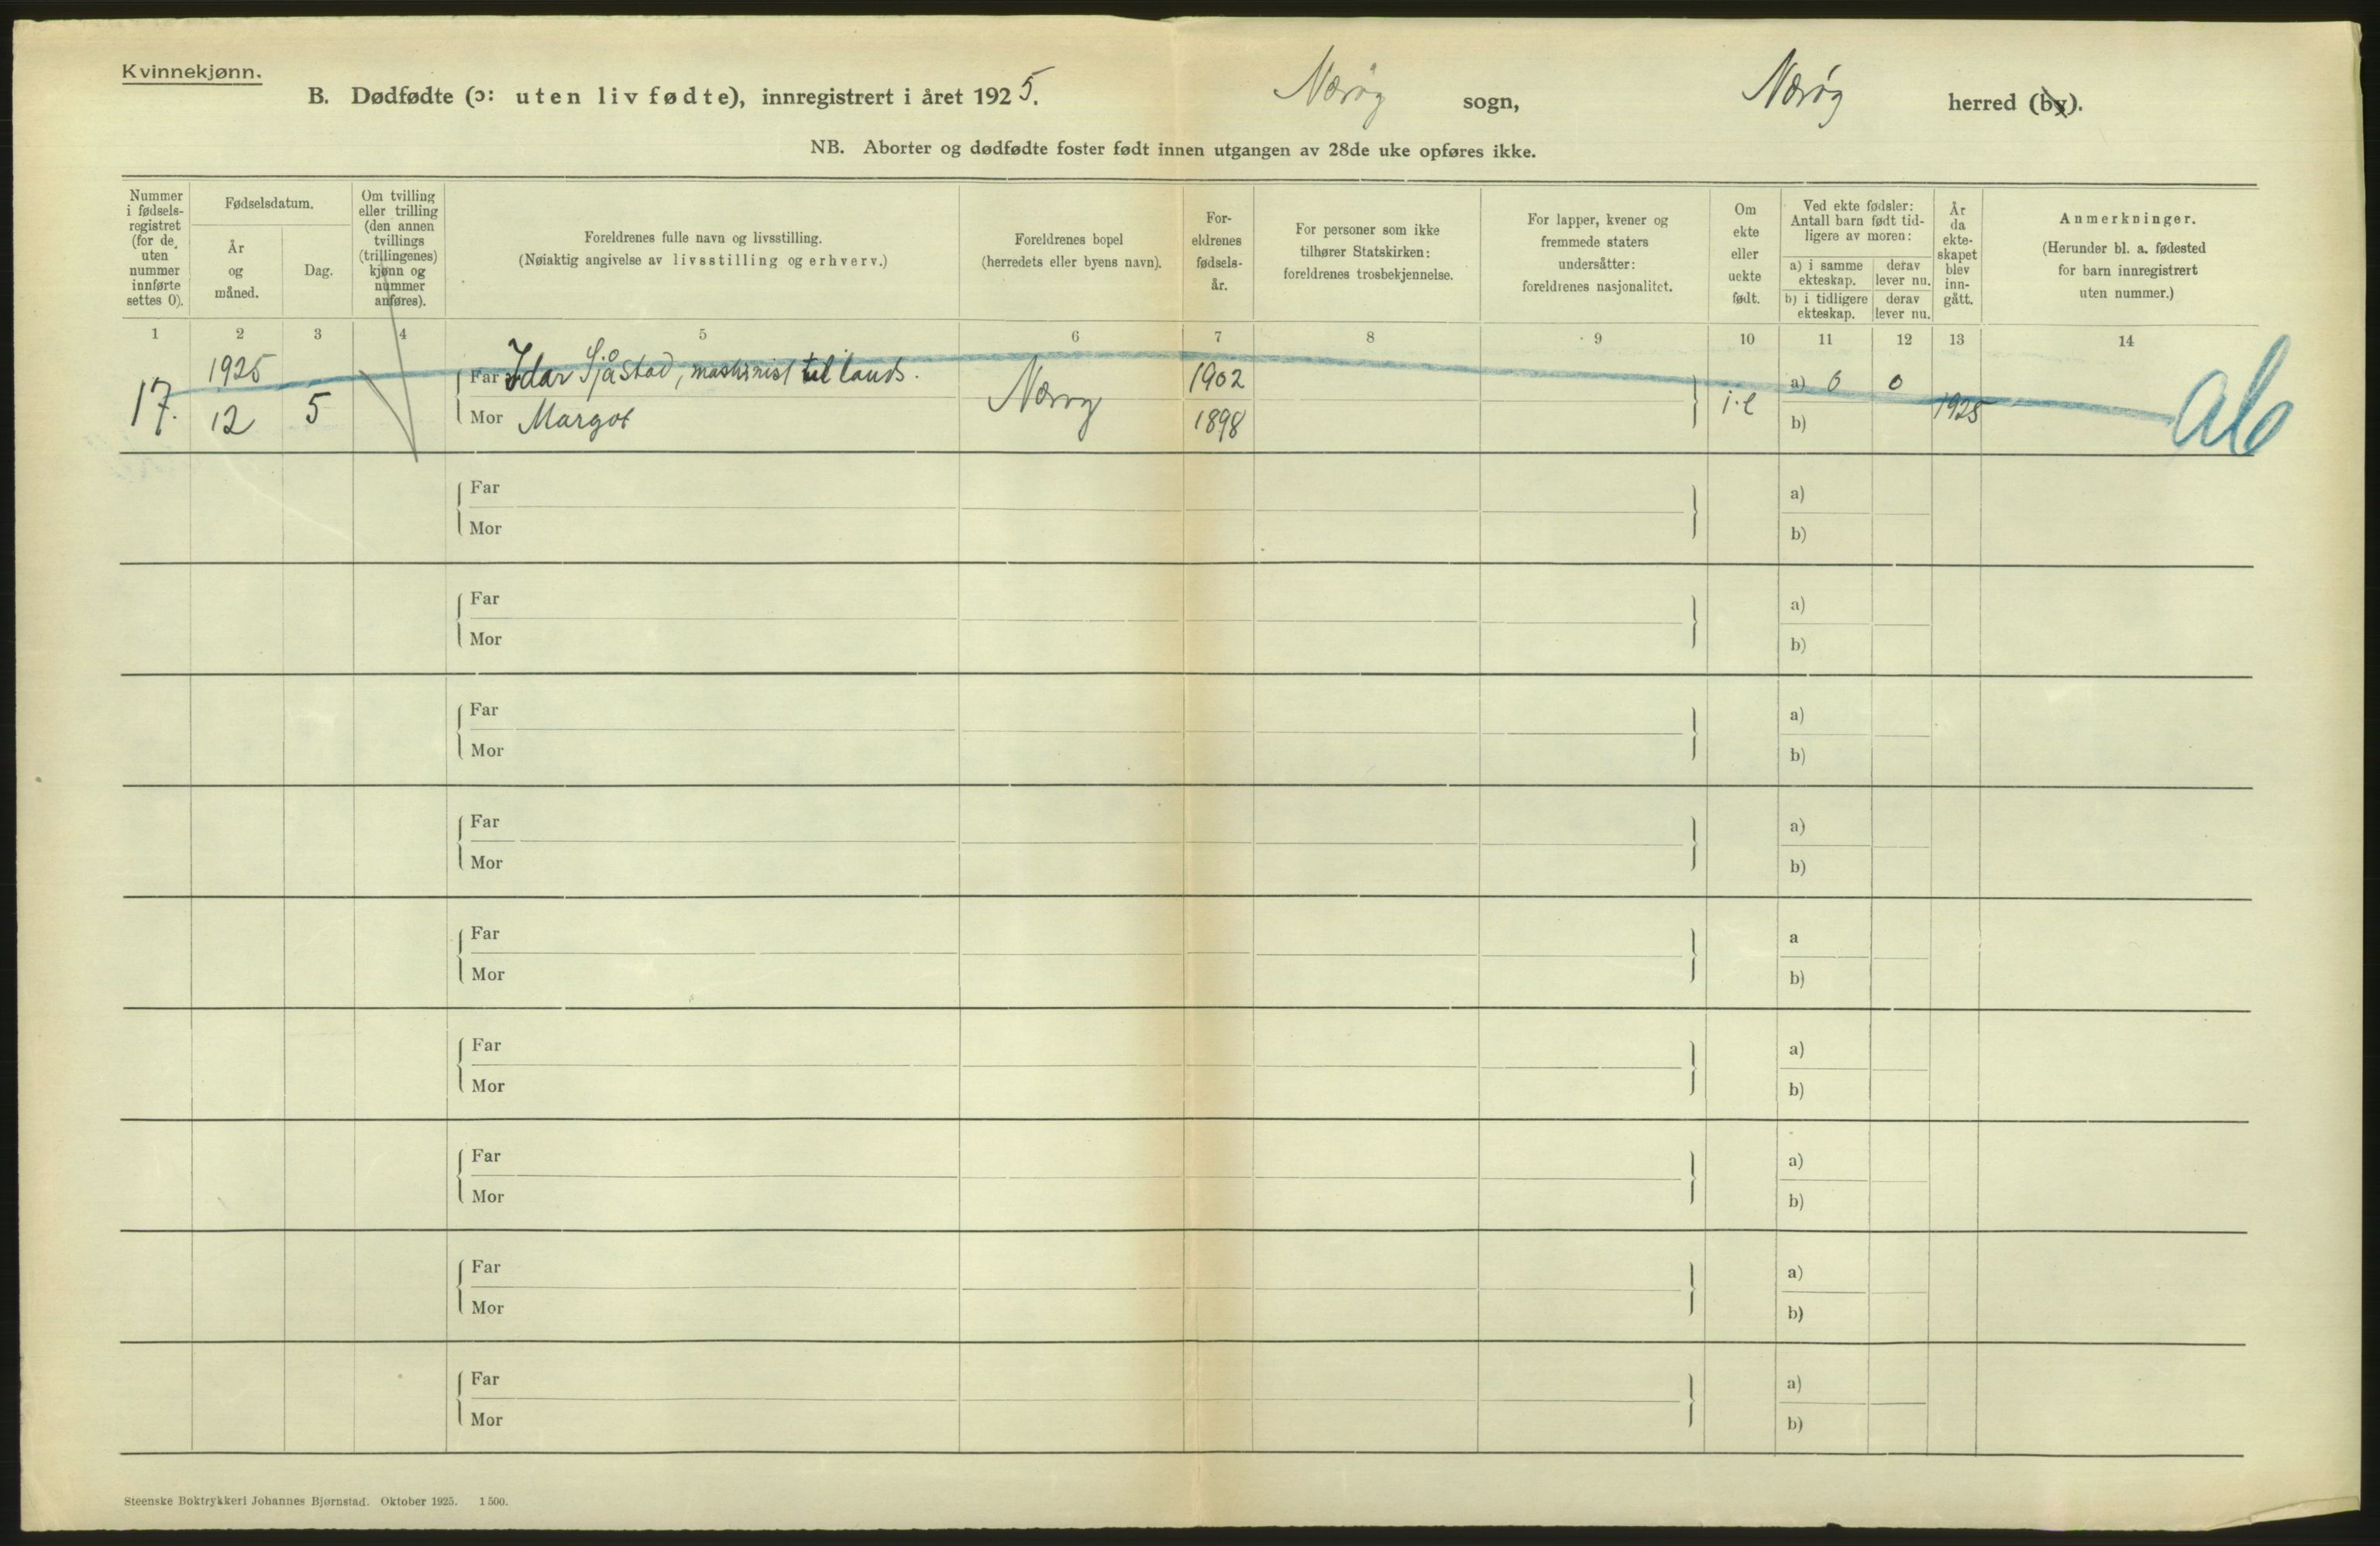 Kvinnekjønn.
B. Dødfødte (ɔ: uten liv fødte), innregistrert i året 1925. Nærøy sogn, Nærøy herred (by).
NB. Aborter og dødfødte foster født innen utgangen av 28de uke opføres ikke.
Nummer i fødselsregistret (for de uten nummer innførte settes 0).
Fødselsdatum.
År og måned.
Dag.
Om tvilling eller trilling (den annen tvillings (trillingenes) kjønn og nummer anføres).
Foreldrenes fulle navn og livsstilling.
(Nøiaktig angivelse av livsstilling og erhverv.)
Foreldrenes bopel
(herredets eller byens navn).
Foreldrenes fødselsår.
For personer som ikke tilhører Statskirken: foreldrenes trosbekjennelse.
For lapper, kvener og fremmede staters undersåtter: foreldrenes nasjonalitet.
Om ekte eller uekte født.
Ved ekte fødsler: Antall barn født tidligere av moren:
a) i samme ekteskap. derav lever nu.
b) i tidligere ekteskap. derav lever nu.
År da ekteskapet blev inngått.
Anmerkninger.
(Herunder bl. a. fødested for barn innregistrert uten nummer.)
1 2 3 4 5 6 7 8 9 10 11 12 13 14
17. 1925 12 5 Far Idar Sjåstad, maskinist til lands. Nærøy 1902 i.e a) 0 0 1925
Mor Margot 1898 b)
Far a)
Mor b)
Far a)
Mor b)
Far a)
Mor b)
Far a)
Mor b)
Far a
Mor b)
Far a)
Mor b)
Far a)
Mor b)
Far a)
Mor b)
Far a)
Mor b)
Steenske Boktrykkeri Johannes Bjørnstad. Oktober 1925. 1500.